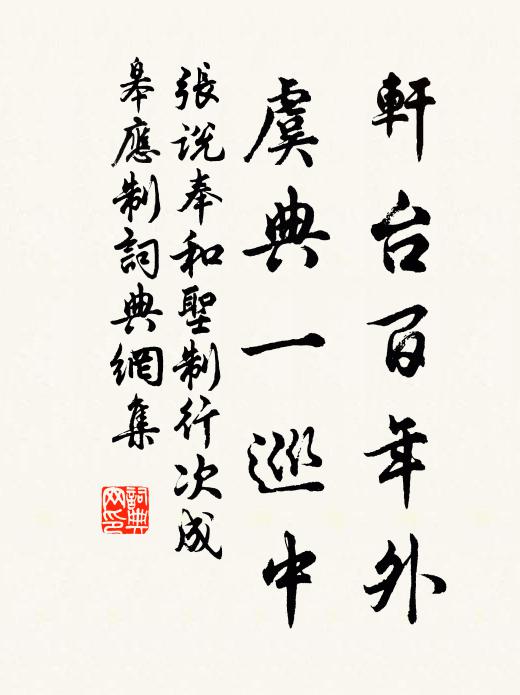 軒台百年外
虞典一巡中
張说奉和聖制行次成
皋應制詞典網集
詞典
网印